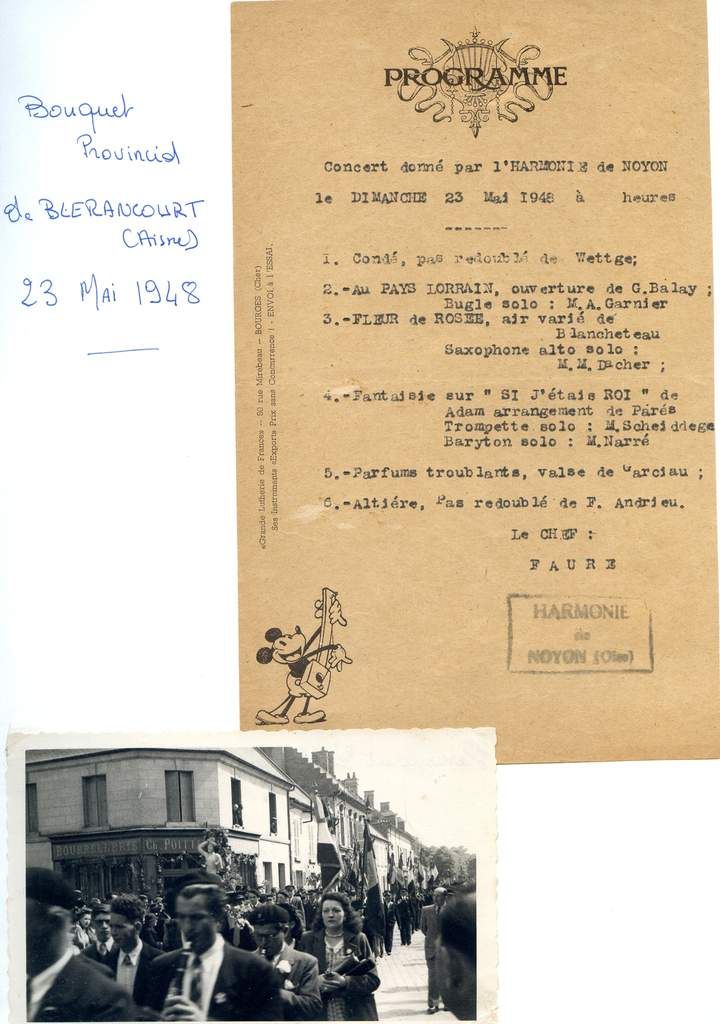 Bouquet
Provincial
de BLERANCOURT
(Aisne)
23 Mai 1948
PROGRAMME
Concert donné par l'HARMONIE de NOYON
le DIMANCHE 23 Mai 1948 à heures
-------
1. Condé, pas redoublé de Wettge;
2.-Au PAYS LORRAIN, ouverture de G.Balay ;
Bugle solo : M.A.Garnier
3.-FLEUR de ROSEE, air varié de
Blancheteau
Saxophone alto solo :
M.M.Dacher ;
4.-Fantaisie sur " SI J'étais ROI " de
Adam arrangement de Parés
Trompette solo : M.Scheiddege
Baryton solo : M.Narré
5.-Parfums troublants, valse de Garciau ;
6.-Altiére, Pas redoublé de F. Andrieu.
Le CHEF :
FAURE
HARMONIE
de
NOYON (Oise)
«Grande Lutherie de France» — 50 rue Mirabeau — BOURGES (Cher)
Ses Instruments «Export» Prix sans Concurrence ! - ENVOI à l'ESSAI.
BOURRELLERIE Ch. POITT